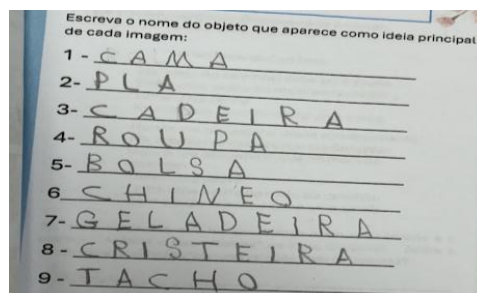 Escreva o nome do objeto que aparece como ideia principal
de cada imagem:
1 - CAMA
2- PLA
3- CADEIRA
4- ROUPA
5- BOLSA
6 CHINEO
7- GELADEIRA
8 - CRISTEIRA
9 - TACHO